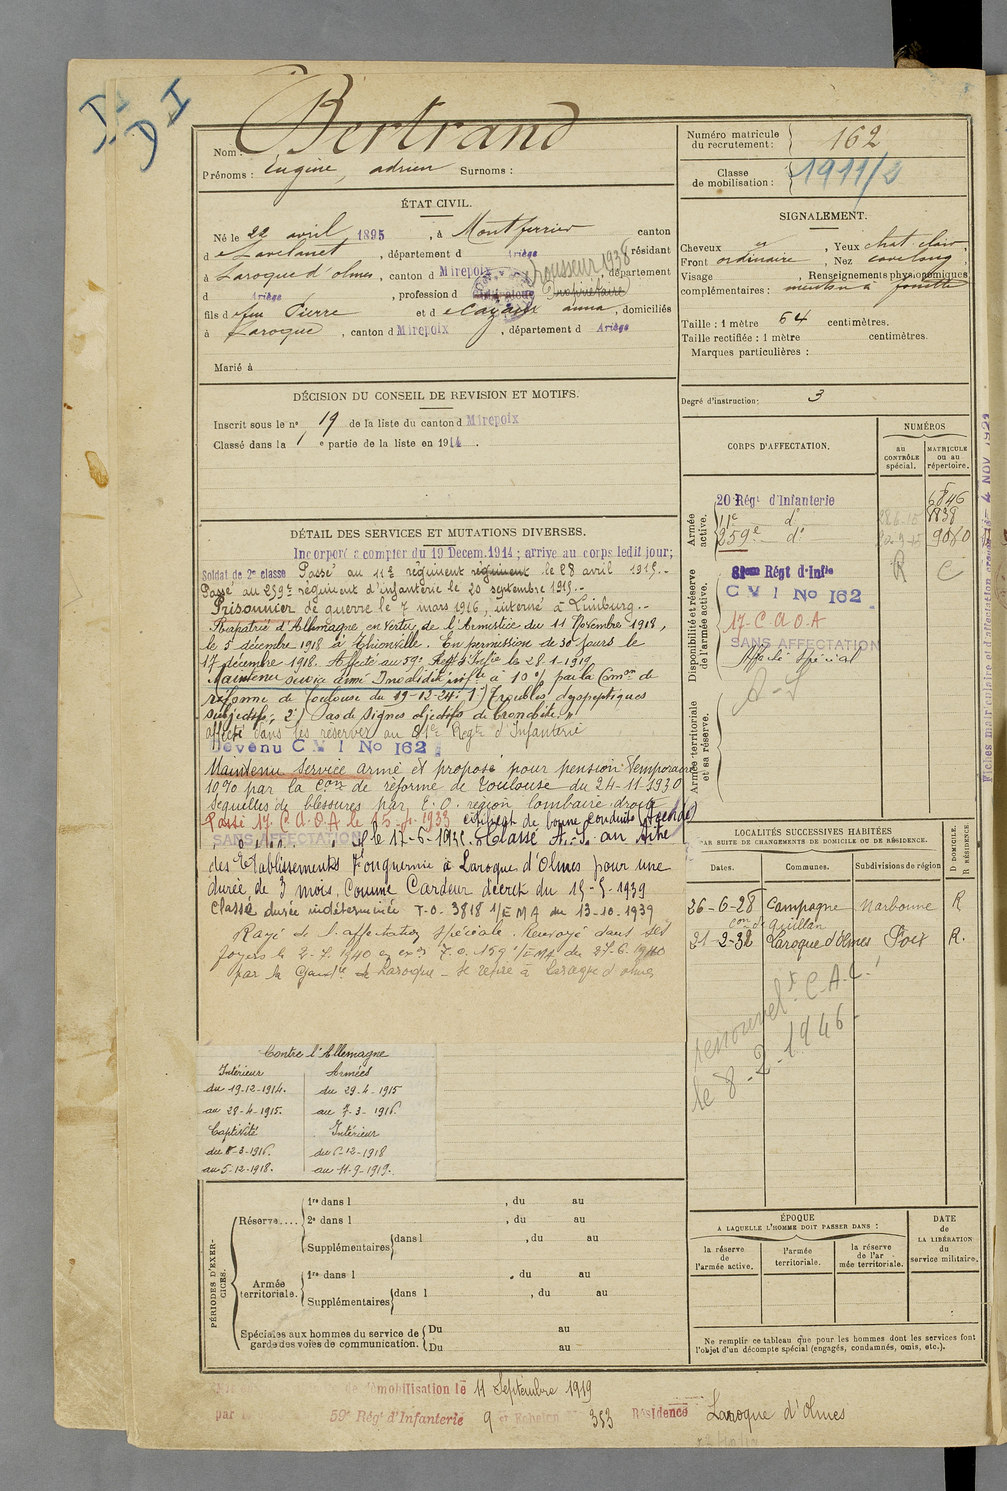 Bertrand
Nom :
Prénoms : Eugène, adrien Surnoms :
ÉTAT CIVIL.
Né le 22 avril 1895, à Montferrier canton
d e Lavelanet, département d Ariège, résidant
à Laroque d'olmes, canton d Mirepoix, département
d Ariège, profession d Propriétaire Trousseur 1938
fils d e feu Pierre et d e anna, domiciliés
à Laroque, canton d Mirepoix, département d Ariège
Marié à
DÉCISION DU CONSEIL DE REVISION ET MOTIFS.
Inscrit sous le n° 19 de la liste du canton d Mirepoix
Classé dans la 1 e partie de la liste en 1914.
DÉTAIL DES SERVICES ET MUTATIONS DIVERSES.
Incorporé à compter du 19 Decem. 1914 ; arrivé au corps ledit jour;
Soldat de 2e classe Passé au 11e régiment régiment le 28 avril 1915.-
Passé au 259e régiment d'infanterie le 20 septembre 1915.-
Prisonnier de guerre le 7 mars 1916, interné à Limburg.-
Rapatrié d'Allemagne en vertu de l'Armistice du 11 Novembre 1918,
le 5 décembre 1918 à Thionville. En permission de 30 jours le
17 décembre 1918. Affecté au 59e Regt d'Infie le 28-1-1919
Maintenu service armé Invalidité infre à 10 % par la Comon de
réforme de Toulouse du 19-12-24: 1°) Troubles dyspeptiques
subjectifs; 2°) Pas de signes objectifs de bronchite."
affecté dans les réserves au 81e Regt d'Infanterie
Devenu C M I No 162
Maintenu Service armé et proposé pour pension Temporaire
10 % par la con de réforme de Toulouse du 24-11-1930
Sequelles de blessures par E. O. région lombaire droite
Passé 17. C.U.O.A le 15-1-1933 certificat de bonne conduite (Accordé)
SANS AFFECTATION le 17-6-1935. Classé A.S. au titre
des Etablissements Fonquernie à Laroque d'Olmes pour une
durée de 3 mois, comme Cardeur décret du 15-5-1939
Classé durée indéterminée T.O. 3818 1/EMA du 13-10-1939
Rayé de l'affectation spéciale. Renvoyé dans ses
foyers le 2-7-1940 en exon T.O. 159 1/EMA du 27-6-1940
par la Gendie de Laroque - Se retire à Laroque d'olmes
Contre l'Allemagne
Intérieur Armées
du 19-12-1914. du 29-4-1915
au 28-4-1915. au 7-3-1916.
Captivité Intérieur
du 8-3-1916. du 6-12-1918
au 5-12-1918. au 11-9-1919.
PÉRIODES D'EXERCICES.
Réserve.... 1re dans l , du au
2e dans l , du au
Supplémentaires dans l , du au
Armée territoriale. 1re dans l , du au
Supplémentaires dans l , du au
Spéciales aux hommes du service de garde des voies de communication. Du au
Du au
démobilisation le 11 Septembre 1919
par 59e Régt d'Infanterie 9 e Echelon 353 Résidence Laroque d'Olmes
Numéro matricule du recrutement : 162
Classe de mobilisation : 1911/2
SIGNALEMENT.
Cheveux , Yeux chat. clair,
Front ordinaire, Nez
Visage , Renseignements physionomiques
complémentaires : menton à fossette
Taille : 1 mètre 64 centimètres.
Taille rectifiée : 1 mètre centimètres.
Marques particulières :
Degré d'instruction : 3
CORPS D'AFFECTATION.
NUMÉROS
au CONTRÔLE spécial.
MATRICULE ou au répertoire.
Armée active.
20e Régt d'Infanterie
11e d°
259e d° 9060
R C
Disponibilité et réserve de l'armée active.
81eme Régt d'Infie
C M I No 162
17. C.U.O.A
SANS AFFECTATION
Affecté Spécial
A-S
Armée territoriale et sa réserve.
LOCALITÉS SUCCESSIVES HABITÉES
PAR SUITE DE CHANGEMENTS DE DOMICILE OU DE RÉSIDENCE.
Dates. Communes. Subdivisions de région D DOMICILE. R RÉSIDENCE.
26-6-28 Campagne Narbonne R
con de Quillan
21-2-32 Laroque d'Olmes Foix R.
renouvelt C.A.C.
le 8-2-1946
ÉPOQUE
A LAQUELLE L'HOMME DOIT PASSER DANS :
la réserve de l'armée active.
l'armée territoriale.
la réserve de l'armée territoriale.
DATE de LA LIBÉRATION du service militaire.
Ne remplir ce tableau que pour les hommes dont les services font
l'objet d'un décompte spécial (engagés, condamnés, omis, etc.).